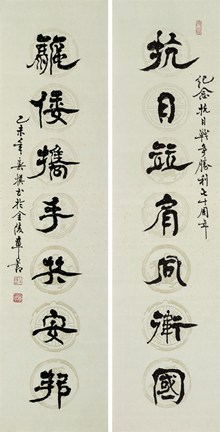 紀念抗日戰爭勝利七十周年
抗日竝肩同衛國
驅倭攜手共安邦
乙未 書於金陵